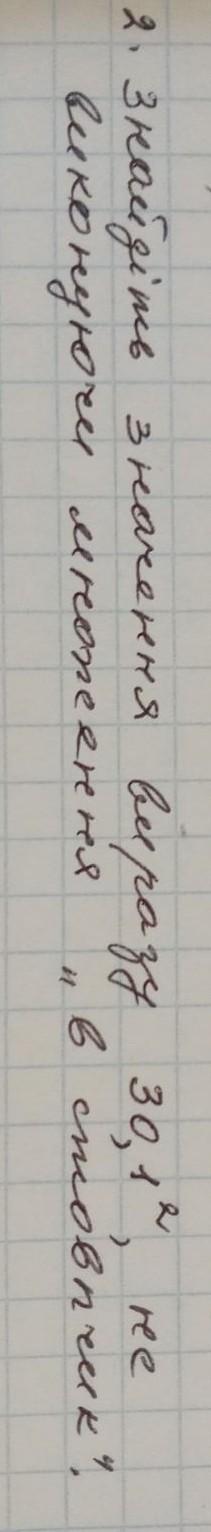 2. Знайдіть значення виразу 30,1², не
виконуючи множення „в стовпчик".